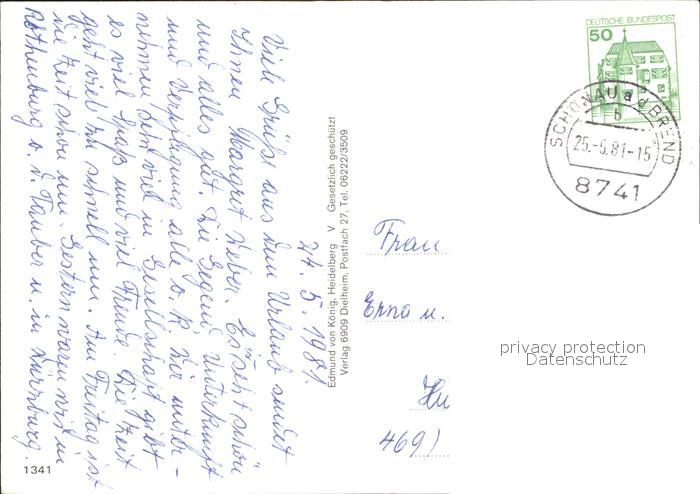 24. 5. 1981.
Viele Grüße aus dem Urlaub sendet
Ihnen Margret Weber. Es ist schön
und alles gut. Die Gegend, Unterkunft
und Verpflegung alle o. K. Wir unter-
nehmen sehr viel in Gesellschaft gibt
es viel Spaß und viel Freude. Die Zeit
geht viel zu schnell um. Am Freitag ist
die Zeit schon um. Gestern waren wir in
Rothenburg o. d. Tauber u. in Würzburg.
Edmund von König, Heidelberg V Gesetzlich geschützt
Verlag 6909 Dielheim, Postfach 27, Tel. 06222/3509
1341
DEUTSCHE BUNDESPOST
50
SCHÖNAU a d BREND
b
25.-5.81-15
8741
Frau
Erna u.
Hu
469)
privacy protection
Datenschutz